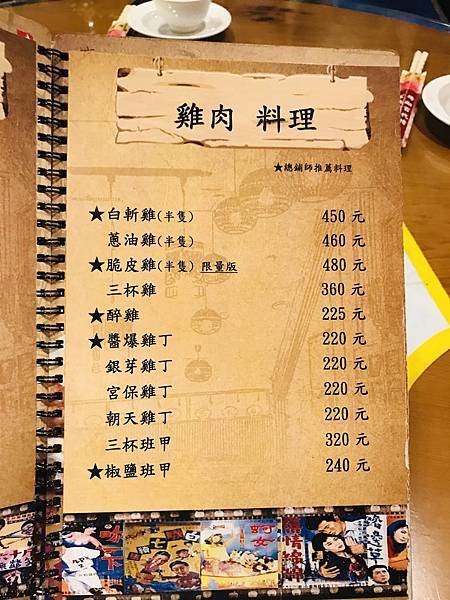 雞肉 料理
★總鋪師推薦料理
★白斬雞(半隻) 450 元
蔥油雞(半隻) 460 元
★脆皮雞(半隻) 限量版 480 元
三杯雞 360 元
★醉雞 225 元
★醬爆雞丁 220 元
銀芽雞丁 220 元
宮保雞丁 220 元
朝天雞丁 220 元
三杯班甲 320 元
★椒鹽班甲 240 元
蚵女